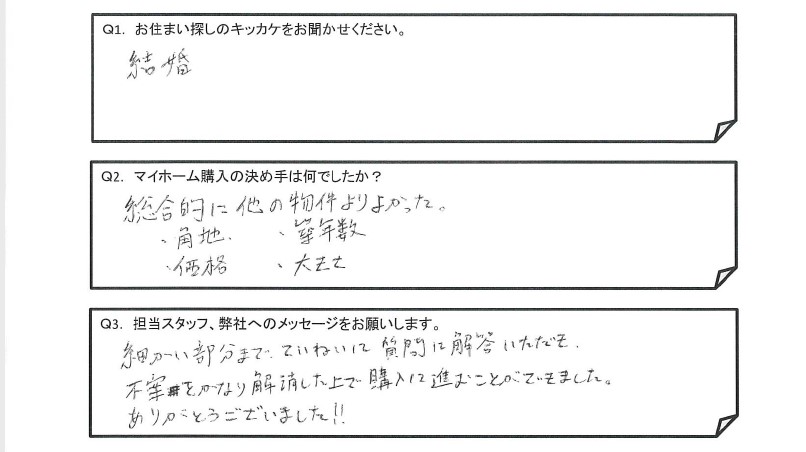 Q1. お住まい探しのキッカケをお聞かせください。
結婚
Q2. マイホーム購入の決め手は何でしたか？
総合的に他の物件よりよかった。
・角地. ・築年数
・価格 ・大きさ
Q3. 担当スタッフ、弊社へのメッセージをお願いします。
細かい部分まで、ていねいに質問に解答いただき、
不案をかなり解消した上で購入に進むことができました。
ありがとうございました!!